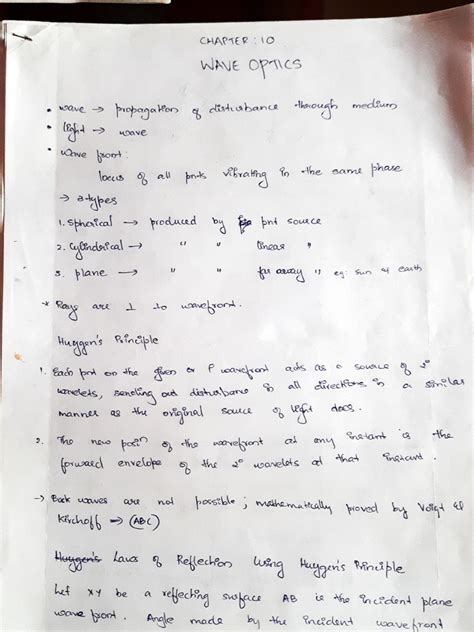 CHAPTER : 10
WAVE OPTICS
• wave → propagation of disturbance through medium
• light → wave
• wave front:
locus of all pnts vibrating in the same phase
→ 3-types
1. Spherical → produced by pnt source
2. Cylindrical → " " linear "
3. plane → " " far away " eg: sun & earth
* Rays are ⊥ to wavefront.
Huygen's Principle
1. Each pnt on the given or P wavefront acts as a source of 2°
wavelets, sending out disturbance in all directions in a similar
manner as the original source of light does.
2. The new posn of the wavefront at any instant is the
forward envelope of the 2° wavelets at that instant.
→ Back waves are not possible ; mathematically proved by Voigt &
Kirchoff → (ABC)
Huygen's Laws of Reflection Using Huygen's Principle
Let XY be a reflecting surface AB is the incident plane
wave front. Angle made by the incident wavefront